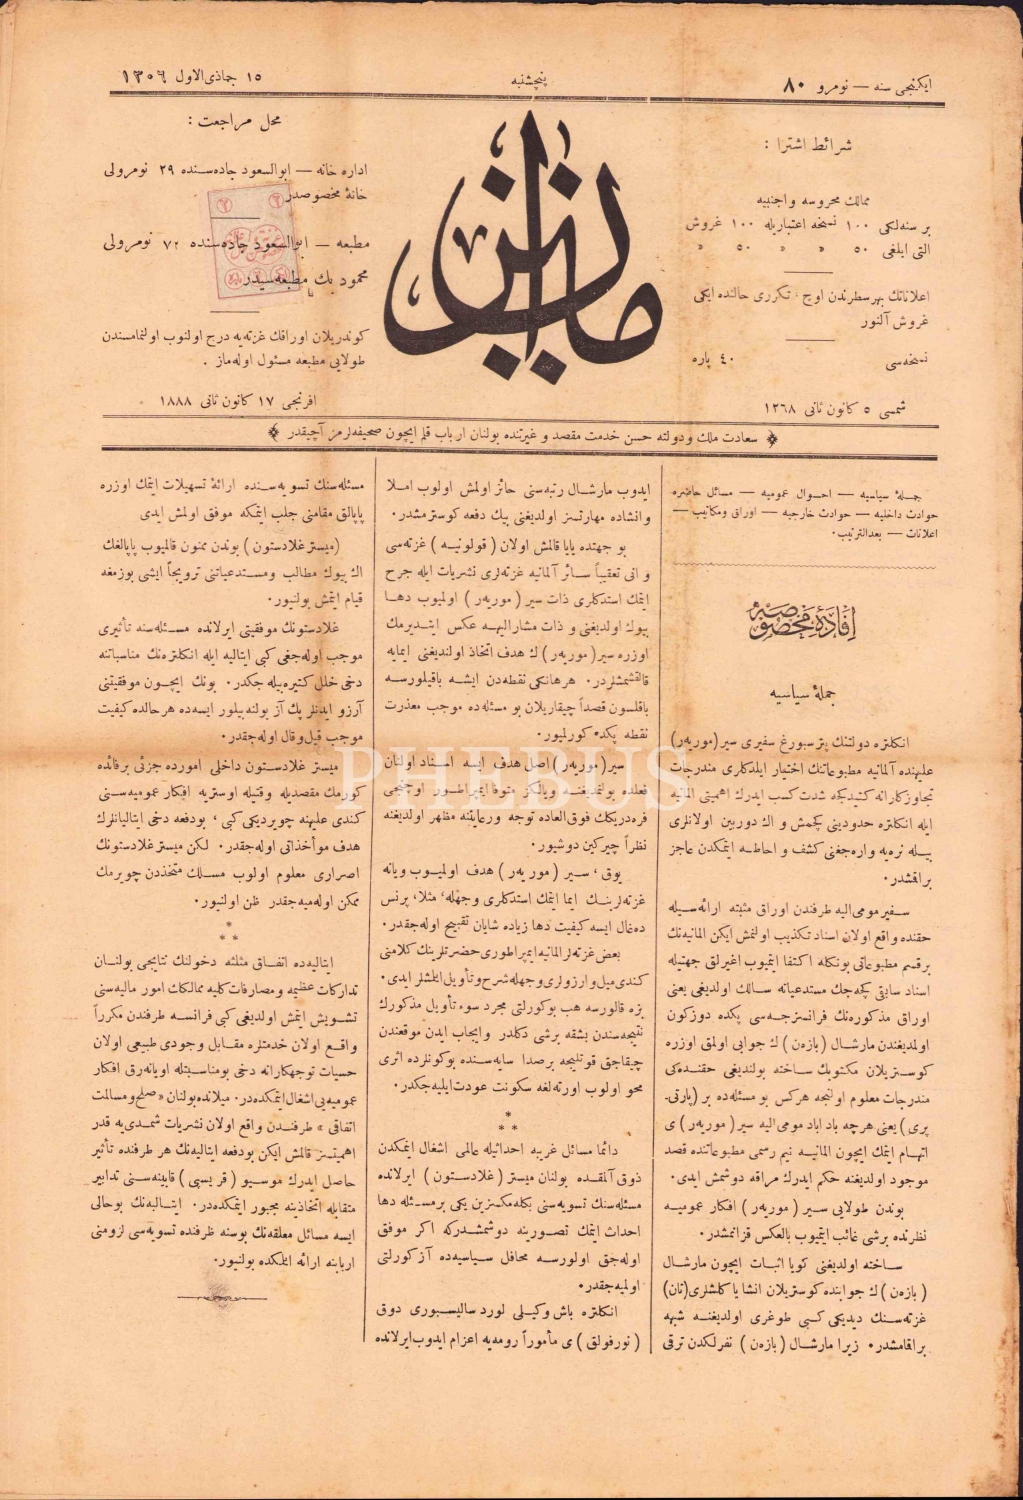 ایكنجی سنه — نومرو ٨٠
پنجشنبه
١٥ جماذی‌الاول ١٣٠٦
شرائط اشترا :
ممالك محروسه و اجنبیه
بر سنه‌لكی ١٠٠ نسخه اعتباریله ١٠٠ غروش
التی ایلغی ٥٠ « « ٥٠ «
اعلاناتك بهر سطرندن اوچ ، تكرری حالنده ایكی
غروش آلنور
نسخه‌سی ٤٠ پاره
شمسی ٥ كانون ثانی ١٢٦٨
میزان
محل مراجعت :
اداره خانه — ابوالسعود جاده‌سنده ٢٩ نومرولی
خانهٔ مخصوصدر
مطبعه — ابوالسعود جاده‌سنده ٧٢ نومرولی
محمود بك مطبعه‌سیدر
كوندریلان اوراقك غزته‌یه درج اولنوب اولنمامسندن
طولایی مطبعه مسئول اوله‌ماز .
افرنجی ١٧ كانون ثانی ١٨٨٨
سعادت ملك و دولته حسن خدمت مقصد و غیرتنده بولنان ارباب قلم ایچون صحیفه‌لرمز آچیقدر
جملهٔ سیاسیه — احوال عمومیه — مسائل حاضره
حوادث داخلیه — حوادث خارجیه — اوراق ومكاتیب —
اعلانات — بعدالترتیب.
افادهٔ مخصوصه
جملهٔ سیاسیه
انكلتره دولتنك پترسبورغ سفیری سیر (موریه‌ر)
علیهنده آلمانیه مطبوعاتنك اختیار ایلدكلری مندرجات
تجاوزكارانه كیتدكجه شدت كسب ایدرك اهمیتی المانیه
ایله انكلتره حدودینی كچمش و اك دوربین اولانلری
بیله نره‌یه واره‌جغنی كشف و احاطه ایتمكدن عاجز
براقشدر.
سفیر مومی‌الیه طرفندن اوراق مثبته ارائه‌سیله
حقنده واقع اولان اسناد تكذیب اولنمش ایكن المانیه‌نك
برقسم مطبوعاتی بونكله اكتفا ایتمیوب اغیرلق جهتیله
اسناد سابقی كچه‌جك مستدعیاته سالك اولدیغی یعنی
اوراق مذكوره‌نك فرانسزجه‌سی پكده دوزكون
اولمدیغندن مارشال (بازەن) ك جوابی اولمق اوزره
كوستریلان مكتوبك ساخته بولندیغی حقنده‌كی
مندرجات معلوم اولنجه هركس بو مسئله‌ده بر (پارتی-
پری) یعنی هرچه باد اباد مومی الیه سیر (موریه‌ر) ی
اتهام ایتمك ایچون المانیه نیم رسمی مطبوعاتنده قصد
موجود اولدیغنه حكم ایدرك مراقه دوشمش ایدی.
بوندن طولایی سیر (موریه‌ر) افكار عمومیه
نظرنده برشی غائب ایتمیوب بالعكس قزانمشدر.
ساخته اولدیغنی كویا اثبات ایچون مارشال
(بازەن) ك جوابنده كوستریلان انشایا كلشلری (تان)
غزته‌سنك دیدیكی كبی طوغری اولدیغنه شبهه
براقامشدر. زیرا مارشال (بازەن) نفرلكدن ترقی
ایدوب مارشال رتبه‌سنی حائز اولمش اولوب املا
و انشاده مهارتسز اولدیغنی بیك دفعه كوسترمشدر.
بو جهتده پایا قالمش اولان (قولونیه) غزته‌سی
و انی تعقیباً سائر آلمانیه غزته‌لری نشریات ایله جرح
ایتمك استدكلری ذات سیر (موریه‌ر) اولمیوب دها
بیوك اولدیغنی و ذات مشارالیهه عكس ایتدیرمك
اوزره سیر (موریه‌ر) ك هدف اتخاذ اولندیغنی ایمایه
قالقشمشلردر. هر هانكی نقطه‌دن ایشه باقیلورسه
باقلسون قصداً چیقاریلان بو مسئله‌ده موجب معذرت
نقطه پكده كورلمیور.
سیر (موریه‌ر) اصل هدف ایسه اسناد اولنان
فعلده بولنمدیغنه ویالكز متوفا ایمپراطور اوچنجی
فره‌دریكك فوق‌العاده توجه ورعایتنه مظهر اولدیغنه
نظراً چیركین دوشیور.
یوق، سیر (موریه‌ر) هدف اولمیوب ویانه
غزته‌لرینك ایما ایتمك استدكلری وجهله، مثلا، پرنس
ده‌غال ایسه كیفیت دها زیاده شایان تقبیح اوله‌جقدر.
بعض غزته‌لر المانیه ایمپراطوری حضرتلرینك كلامنی
كندی میل و ارزولری وجهله شرح و تأویل ایلمشلر ایدی.
بزه قالورسه هب بوكورلتی مجرد سوء تأویل مذكورك
نتیجه‌سندن بشقه برشی دكلدر وایجاب ایدن موقعندن
چیقاجق قوتلیجه برصدا سایه‌سنده بوكونلرده اثری
محو اولوب اورته‌لغه سكونت عودت ایلیه‌جكدر.
*
* *
دائما مسائل غریبه احداثیله عالمی اشغال ایتمكدن
ذوق آلمقده بولنان میستر (غلادستون) ایرلانده
مسئله‌سنك تسویه‌سنی بكله‌مكسزین یكی برمسئله دها
احداث ایتمك تصورینه دوشمشدركه اكر موفق
اوله‌جق اولورسه محافل سیاسیه‌ده آز كورلتی
اولمیه‌جقدر.
انكلتره باش وكیلی لورد سالیسبوری دوق
(نورفولق) ی مأموراً رومه‌یه اعزام ایدوب ایرلانده
مسئله‌سنك تسویه‌سنده ارائهٔ تسهیلات ایتمك اوزره
پاپالق مقامنی جلب ایتمكه موفق اولمش ایدی
(میستر غلادستون) بوندن ممنون قالمیوب پاپالغك
اك بیوك مطالب ومستدعیاتنی ترویجاً ایشی بوزمغه
قیام ایتمش بولنیور.
غلادستونك موفقیتی ایرلانده مسئله‌سنه تأثیری
موجب اوله‌جغی كبی ایتالیه ایله انكلتره‌نك مناسباتنه
دخی خلل كتیره‌بیله‌جكدر. بونك ایچون موفقیتنی
آرزو ایدنلر پك آز بولنه‌بیلور ایسه‌ده هر حالده كیفیت
موجب قیل وقال اوله‌جقدر.
میستر غلادستون داخلی اموردە جزئی برفائده
كورمك مقصدیله وقتیله اوستریه افكار عمومیه‌سنی
كندی علیهنه چویردیكی كبی، بودفعه دخی ایتالیانلرك
هدف مؤاخذاتی اوله‌جقدر. لكن میستر غلادستونك
اصراری معلوم اولوب مسلك متخذندن چویرمك
ممكن اوله‌میه‌جقدر ظن اولنیور.
*
* *
ایتالیه‌ده اتفاق مثلثه دخولنك نتایجی بولنان
تداركات عظیمه ومصارفات كلیه ممالكك امور مالیه‌سنی
تشویش ایتمش اولدیغی كبی فرانسه طرفندن مكرراً
واقع اولان خدمتلره مقابل وجودی طبیعی اولان
حسیات توجهكارانه دخی بومناسبتله اویانه‌رق افكار
عمومیه‌یی اشغال ایتمكده‌در. میلانده بولنان « صلح ومسالمت
اتفاقی » طرفندن واقع اولان نشریات شمدی‌یه قدر
اهمیتسز قالمش ایكن بودفعه ایتالیه‌نك هر طرفنده تأثیر
حاصل ایدرك موسیو (قریسپی) قابینه‌سنی تدابیر
متقابله اتخاذینه مجبور ایتمكده‌در. ایتالیه‌نك بوحالی
ایسه مسائل معلقه‌نك بوسنه ظرفنده تسویه‌سی لزومنی
اربابنه ارائه ایتمكده بولنیور.
PHEBUS